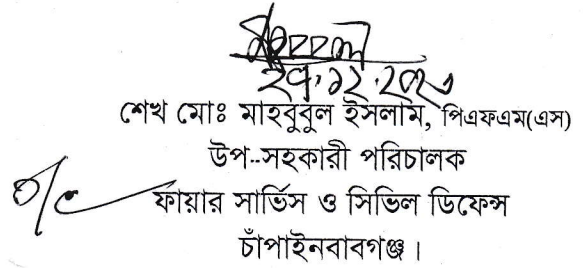 ২৭.১২.২০২৩
শেখ মোঃ মাহবুবুল ইসলাম, পিএফএম(এস)
উপ-সহকারী পরিচালক
ফায়ার সার্ভিস ও সিভিল ডিফেন্স
চাঁপাইনবাবগঞ্জ।